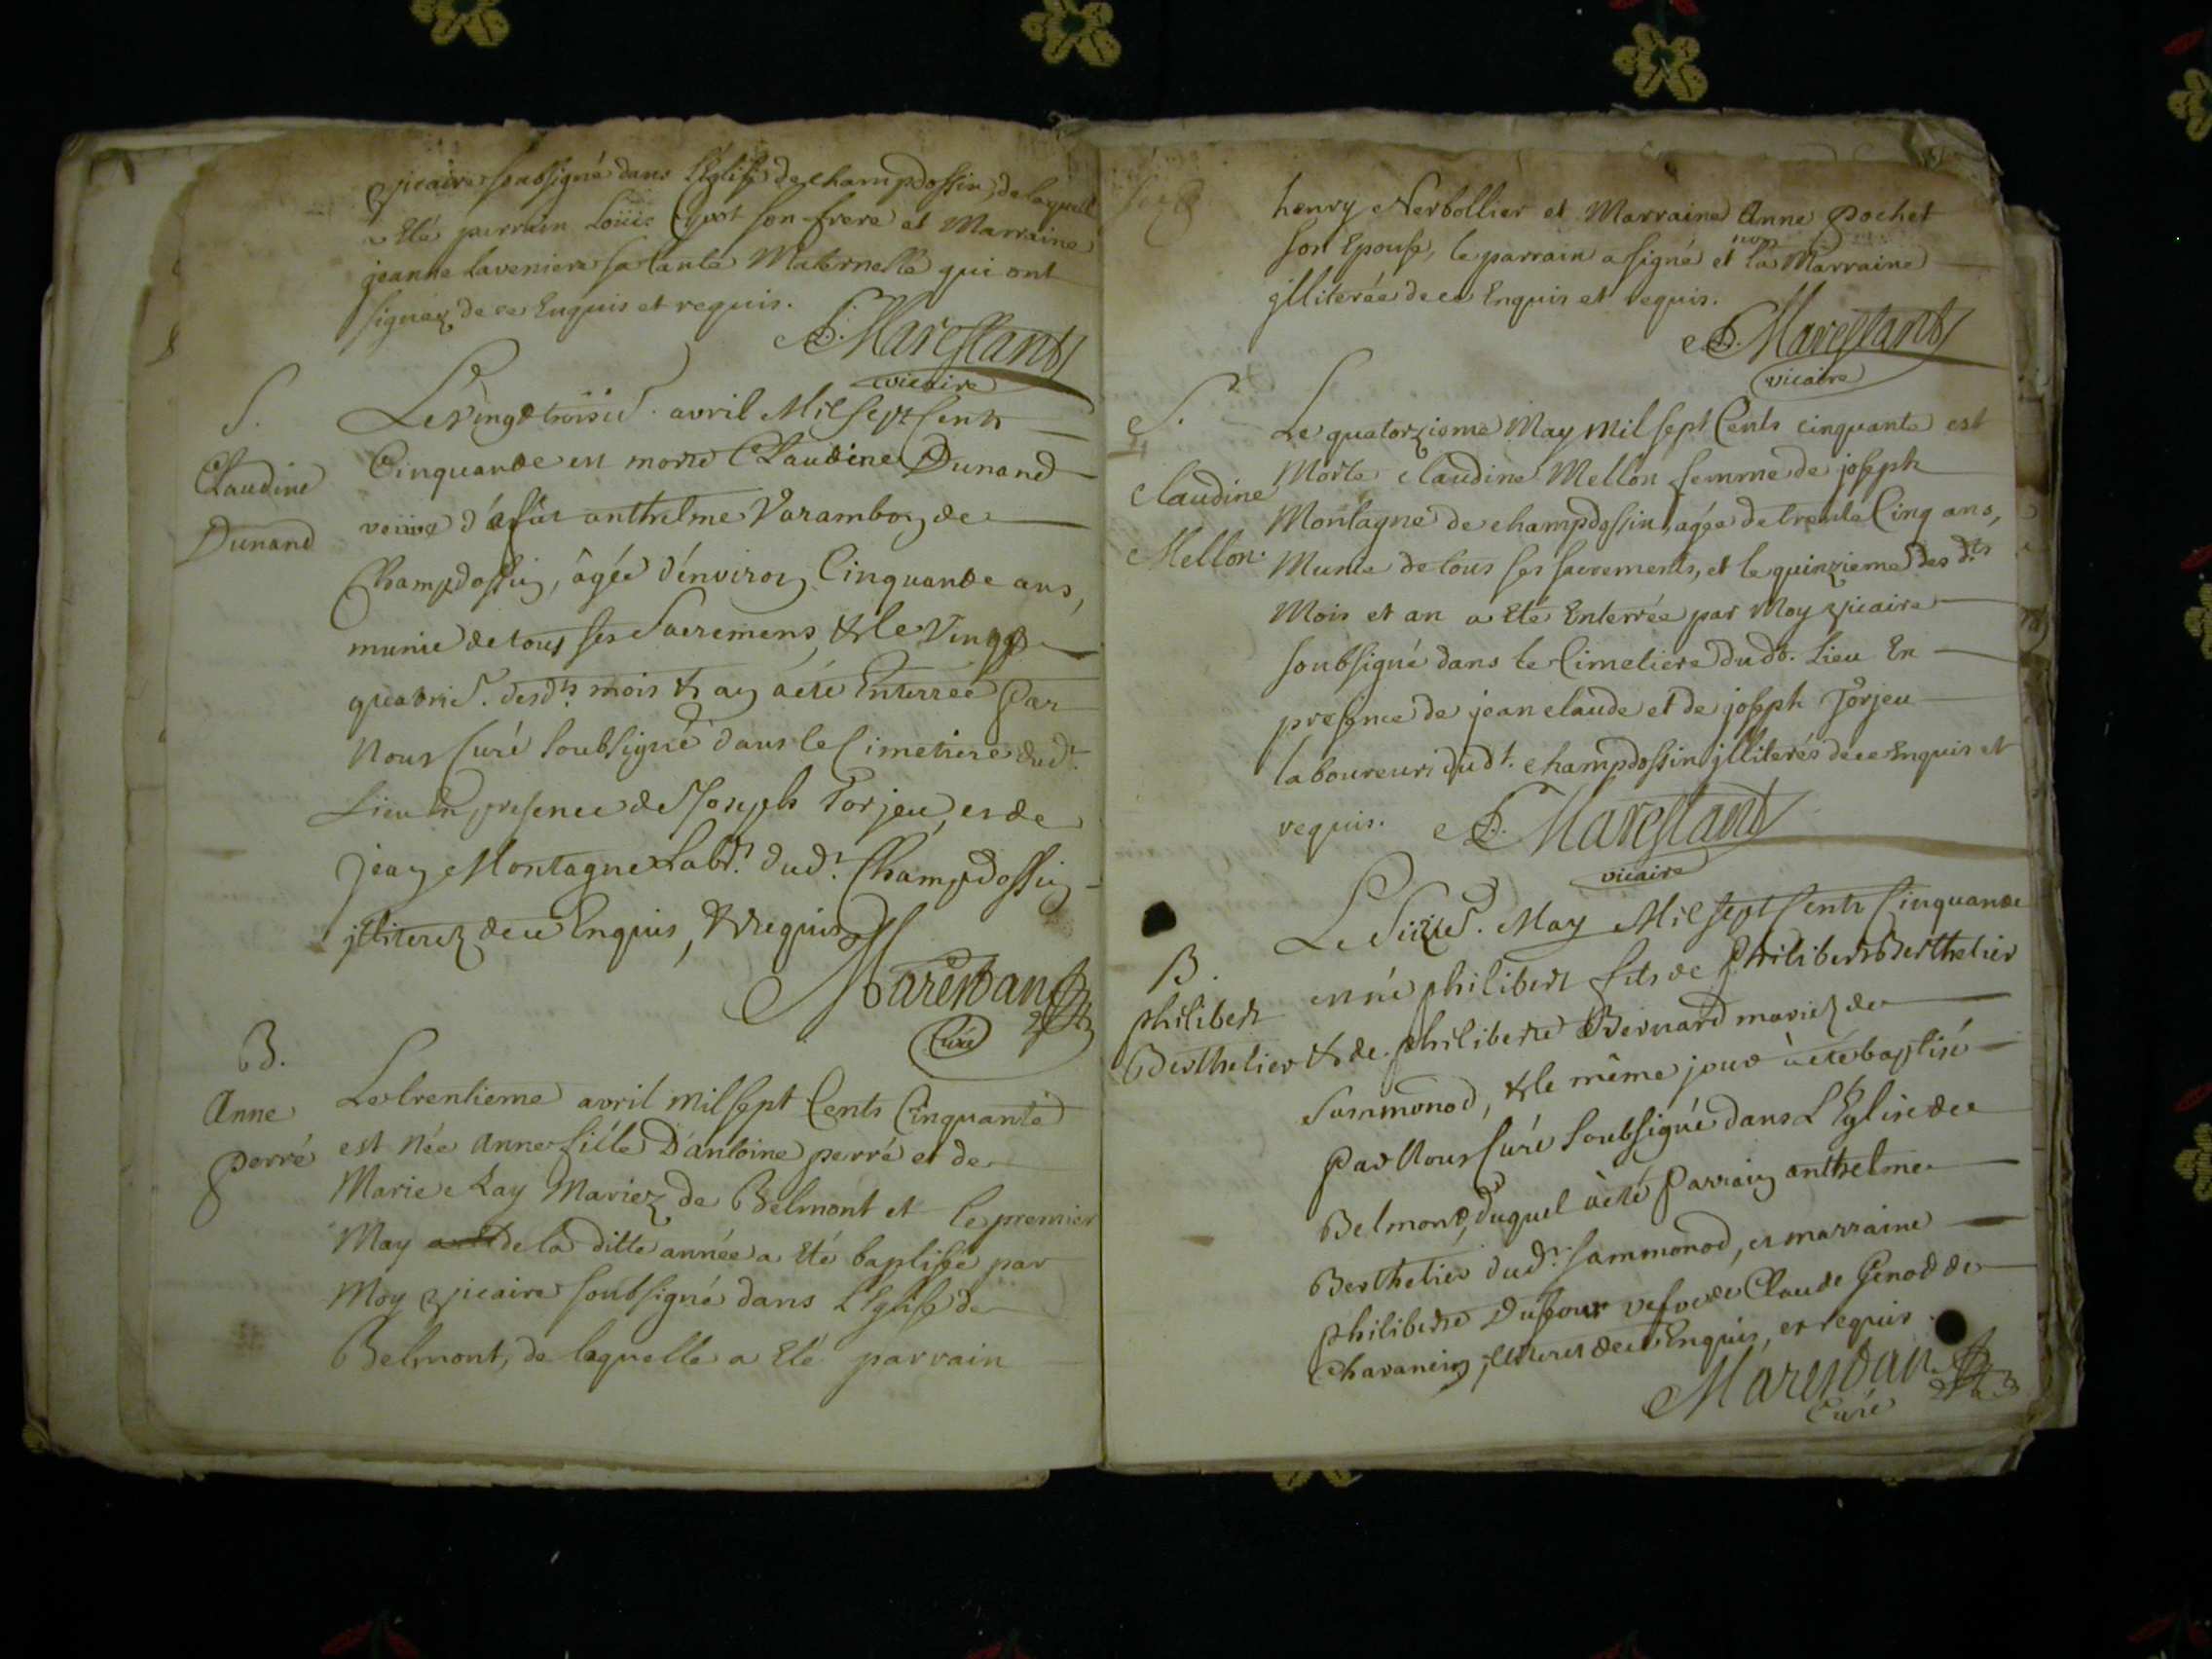 vicaire soubsigné dans L'Eglise de champdossin, de laquelle
a Eté parrain Loüis son frere et Marraine
jeanne laveniere sa tante Maternelle qui ont
signéz de ce Enquis et requis.
Marestant
vicaire
S.
Claudine
Dunand
Le vingt troisie. avril Mil sept Cents
Cinquante est morte Claudine Dunand
veüve d'afut anthelme Varamboz de
Champdossin, âgée d'environ Cinquante ans,
munie de tous ses Sacremens, & le Vingt
quatrie. desd.ts mois & an a été Enterrée par
Nous Curé soubsigné dans le Cimetiere dud.t
Lieu En presence de Joseph Torjeu, et de
jean Montagne Labr. dud.t Champdossin
illiterez de ce Enquis, & requis
Marestan
Curé
B.
Anne
perré
Le trentieme avril mil sept Cents Cinquante
est Née Anne fille D'antoine perré et de
Marie Ray Mariez de Belmont et le premier
May de la ditte année a Eté baptisée par
Moy vicaire soubsigné dans L'Eglise de
Belmont, de laquelle a Eté parrain
henry Nerbollier et Marraine Anne pochet
son Epouse, le parrain a signé et non la Marraine
jlliterée de ce Enquis et requis.
D. Marestant
vicaire
S.
Claudine
Mellon.
Le quatorzieme May mil sept Cents cinquante est
Morte Claudine Mellon femme de joseph
Montagne de champdossin, agée de trente Cinq ans,
Munie de tous ses sacrements, et le quinzieme des d.ts
Mois et an a Eté Enterrée par Moy vicaire
soubsigné dans le Cimetiere dudt. Lieu En
presence de jean claude et de joseph Torjeu
laboureurs dudt. champdossin jlliterés de ce Enquis et
requis. D. Marestant
vicaire
B.
philibert
Berthelier
Le Sizie. May Mil sept Cents Cinquante
est né philibert fils de Philibert Berthelier
& de philiberte Bernard mariez de
Sammonod, & le même jour à été baptisé
Par Nous Curé soubsigné dans L'Eglise de
Belmont, duquel à été Parrain anthelme
Berthelier dud.t sammonod, et marraine
philiberte Dufour vefve de Claude Genod de
Chavanin jlliterés de ce Enquis, et requis.
Marestan
Curé